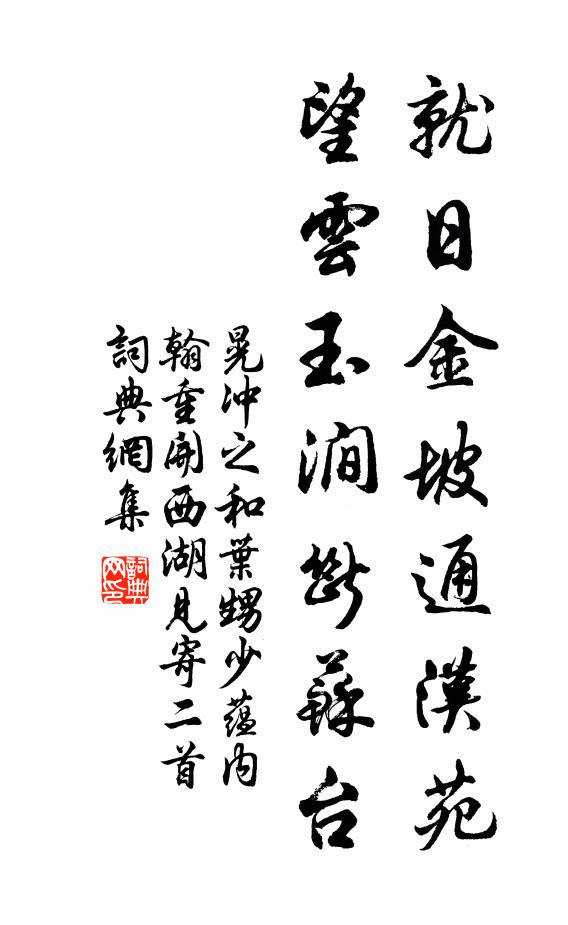 就日金坡通漢苑
望雲玉澗斷蘇台
晁沖之和葉甥少蘊內
翰重開西湖見寄二首
詞典網集
詞典网印